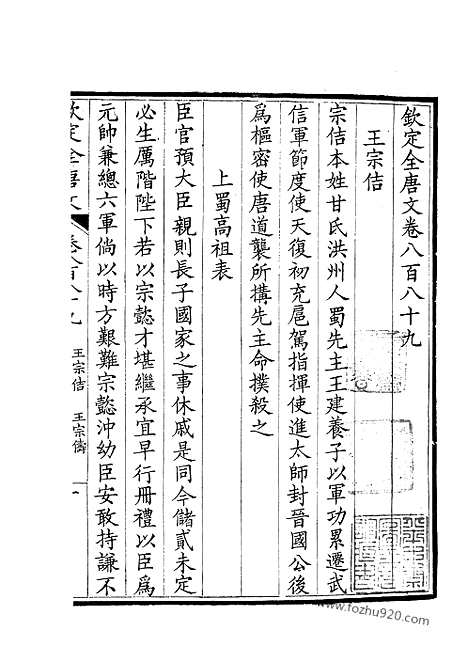 欽定全唐文卷八百八十九
王宗佶
宗佶本姓甘氏洪州人蜀先主王建養子以軍功累遷武
信軍節度使天復初充扈駕指揮使進太師封晉國公後
爲樞密使唐道襲所搆先主命撲殺之
上蜀高祖表
臣官預大臣親則長子國家之事休戚是同今儲貳未定
必生厲階陛下若以宗懿才堪繼承宜早行冊禮以臣爲
元帥兼總六軍倘以時方艱難宗懿沖幼臣安敢持謙不
欽定全唐文 卷八百八十九 王宗佶 王宗儔 一
www.fozhu920.com